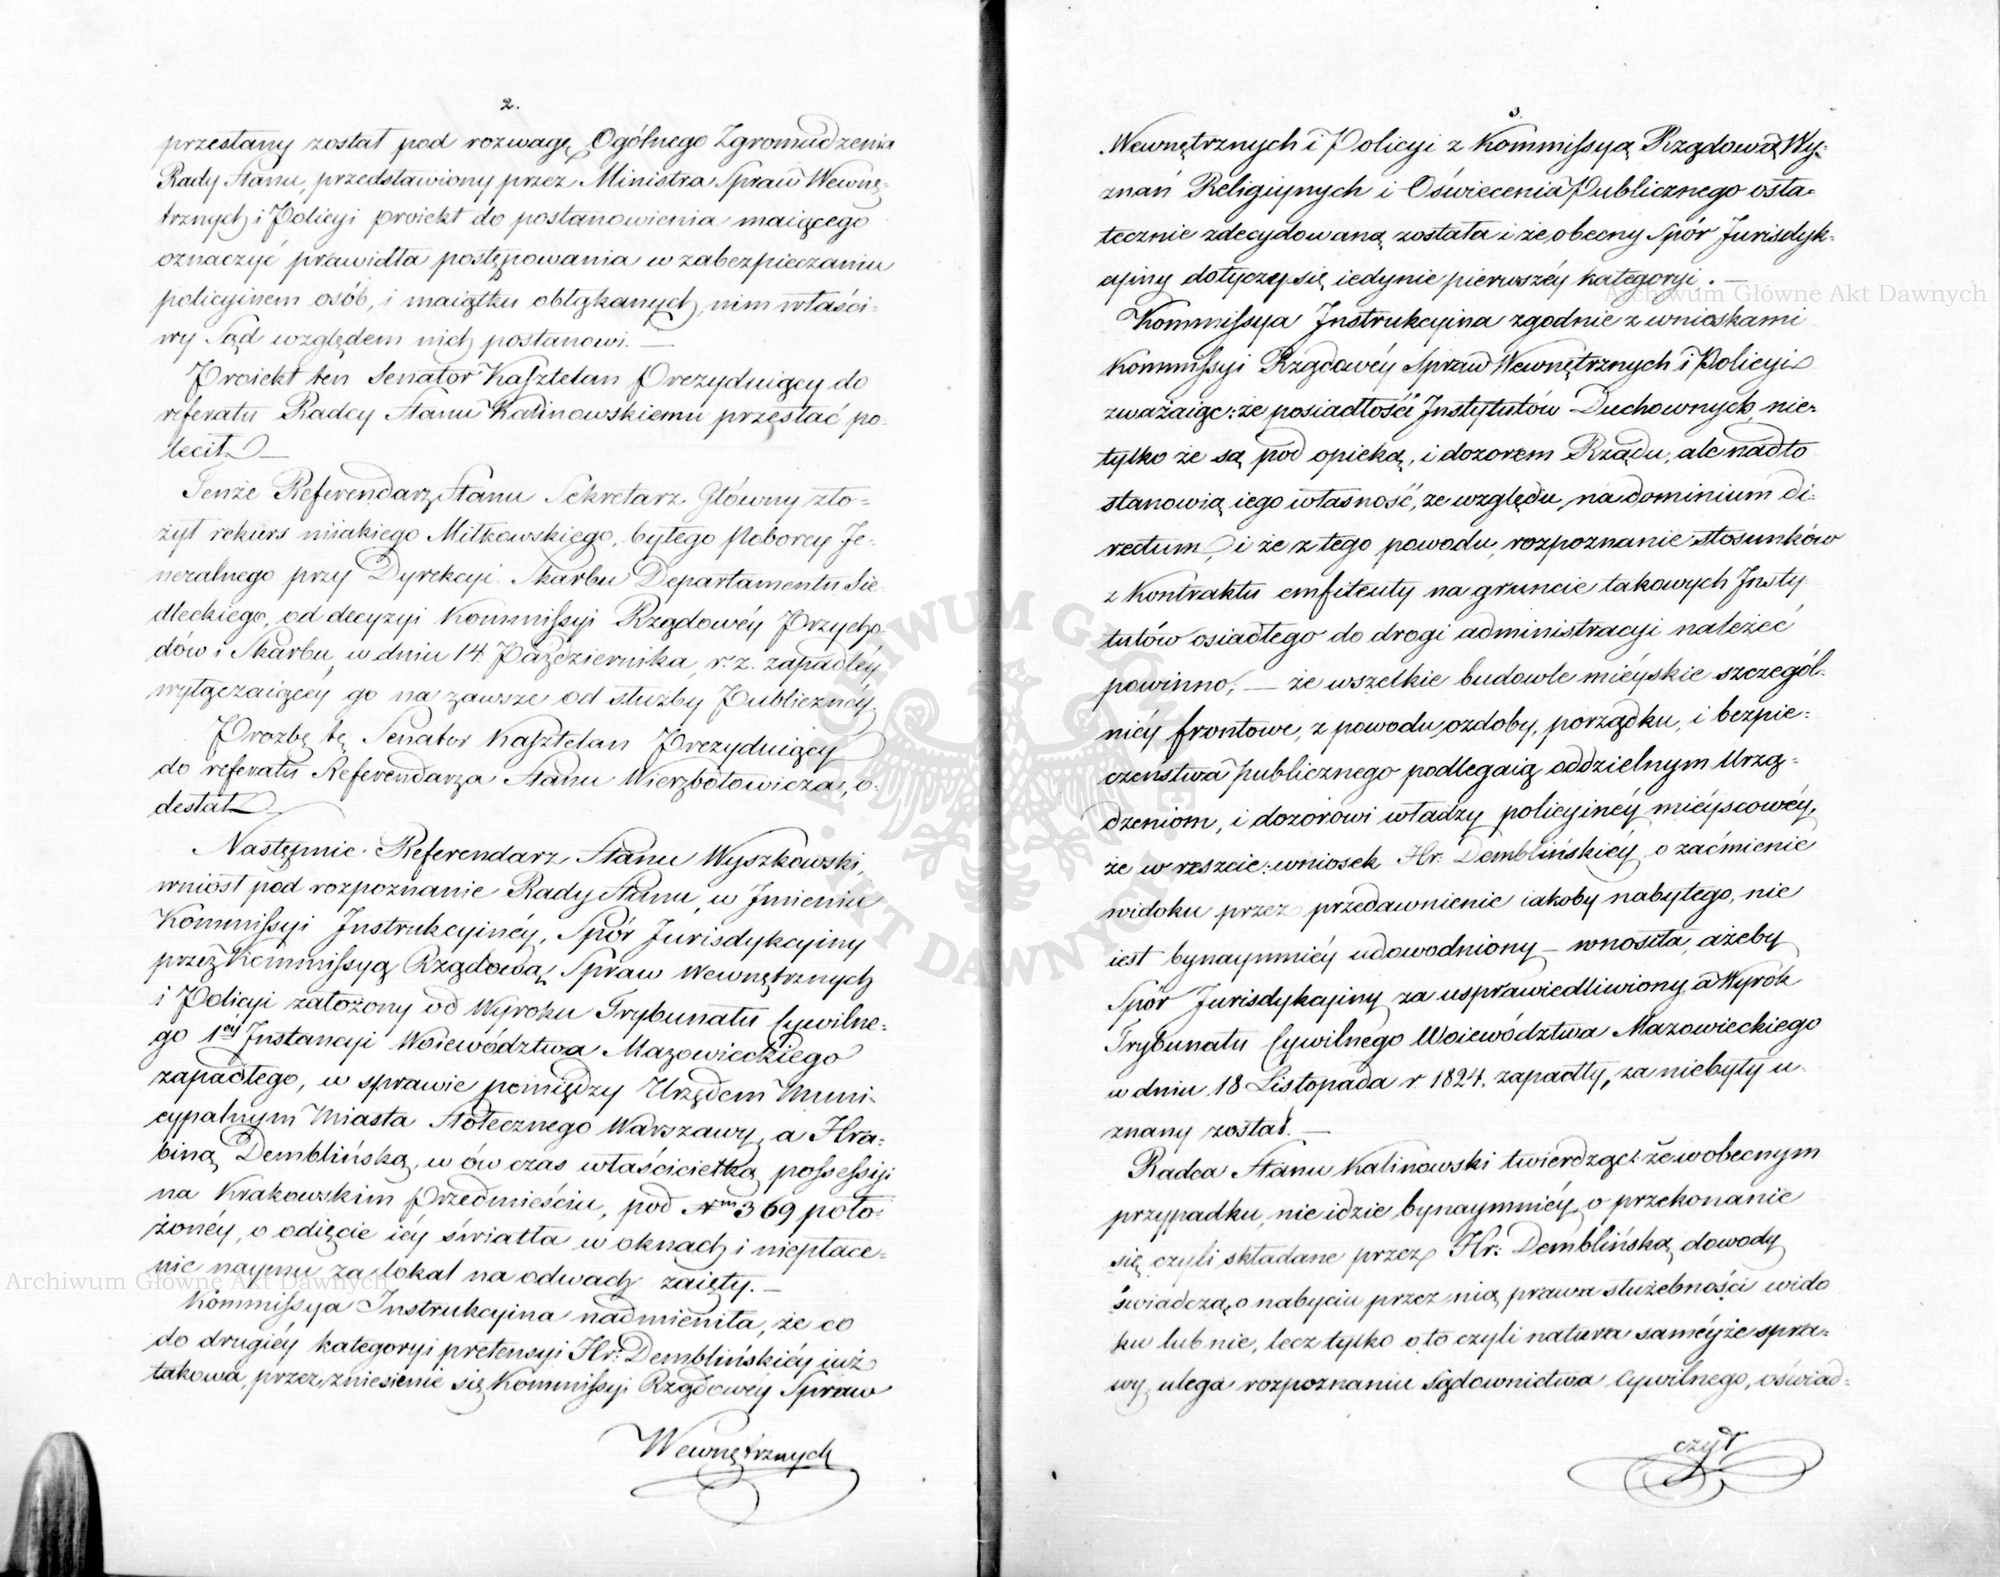 2.
przesłany został pod rozwagę Ogólnego Zgromadzenia
Rady Stanu, przedstawiony przez Ministra Spraw Wewnę-
trznych i Policyi proiekt do postanowienia maiącego
oznaczyć prawidła postępowania w zabezpieczaniu
policyinem osób, i maiątku obłąkanych, nim właści-
wy Sąd względem nich postanowi. —
Proiekt ten Senator Kasztelan Prezyduiący do
referatu Radcy Stanu Kalinowskiemu przesłać po-
lecił. —
Tenże Referendarz Stanu Sekretarz Główny zło-
żył rekurs niiakiego Miłkowskiego, byłego Poborcy Je-
neralnego przy Dyrekcyi Skarbu Departamentu Sie-
dleckiego, od decyzyi Kommissyi Rządowéy Przycho-
dów i Skarbu, w dniu 14 Października, r. z. zapadłéy,
wyłączaiącéy go na zawsze od służby Publicznéy.
Prozbę tę Senator Kasztelan Prezyduiący
do referatu Referendarza Stanu Wierzbołowicza, o-
desłał.
Następnie Referendarz Stanu Wyszkowski,
wniósł pod rozpoznanie Rady Stanu, w Jmieniu
Kommissyi Jnstrukcyinéy, Spór Jurisdykcyiny
przez Kommissyą Rządową Spraw Wewnętrznych
i Policyi założony od Wyroku Trybunału Cywilne-
go 1éy Jnstancyi Woiewództwa Mazowieckiego
zapadłego, w sprawie pomiędzy Urzędem Muni-
cypalnym Miasta Stołecznego Warszawy, a Hra-
biną Demblińską, w ów czas właścicielką possessyi
na Krakowskim Przedmieściu, pod Nrm 369 poło-
żonéy, o odięcie iéy światła w oknach i niepłace-
nie naymu za lokal na odwach zaięty. —
Kommissya Jnstrukcyina nadmieniła, że co
do drugiéy kategoryi pretensyi Hr: Demblińskiéy iuż
takowa, przez zniesienie się Kommissyi Rządowéy Spraw
Wewnętrznych
3.
Wewnętrznych i Policyi z Kommissyą Rządową Wy-
znań Religiynych i Oświecenia Publicznego osta-
tecznie zdecydowaną została i że obecny Spór Jurisdyk-
cyiny dotyczy się iedynie pierwszéy kategoryi. —
Kommissya Jnstrukcyina zgodnie z wnioskami
Kommissyi Rządowéy Spraw Wewnętrznych i Policyi
zważaiąc: że posiadłości Jnstytutów Duchownych, nie-
tylko że są pod opieką, i dozorem Rządu, ale nadto
stanowią iego własność, ze względu, na dominium di-
rectum, i że z tego powodu, rozpoznanie stosunków
z Kontraktu emfiteuty na gruncie takowych Jnsty-
tutów osiadłego do drogi administracyi należeć
powinno; — że wszelkie budowle mieyskie szczegól-
niéy frontowe, z powodu, ozdoby, porządku, i bezpie-
czeństwa publicznego podlegaią oddzielnym Urzą-
dzeniom, i dozorowi władzy policyinéy mieyscowéy,
że w reszcie: wniosek Hr: Demblińskiéy o zaćmienie
widoku przez przedawnienie iakoby nabytego, nie
iest bynaymniéy udowodniony — wnosiła, ażeby
Spór Jurisdykcyiny za usprawiedliwiony, a Wyrok
Trybunału Cywilnego Woiewództwa Mazowieckiego
w dniu 18 Listopada r 1824. zapadły, za niebyły u-
znany został. —
Radca Stanu Kalinowski twierdząc: że w obecnym
przypadku, nie idzie bynaymniéy, o przekonanie
się, czyli składane przez Hr: Demblińską dowody
świadczą, o nabyciu przez nią prawa służebności wido
ku lub nie, lecz tylko o to czyli natura saméyże spra-
wy, ulega rozpoznaniu Sądownictwa Cywilnego, oświad-
czył
Archiwum Główne Akt Dawnych
Archiwum Główne Akt Dawnych
ARCHIWUM GŁÓWNE AKT DAWNYCH